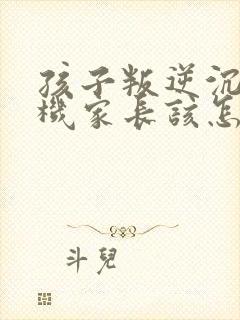 孩子叛逆沉
機家長該怎
斗兒